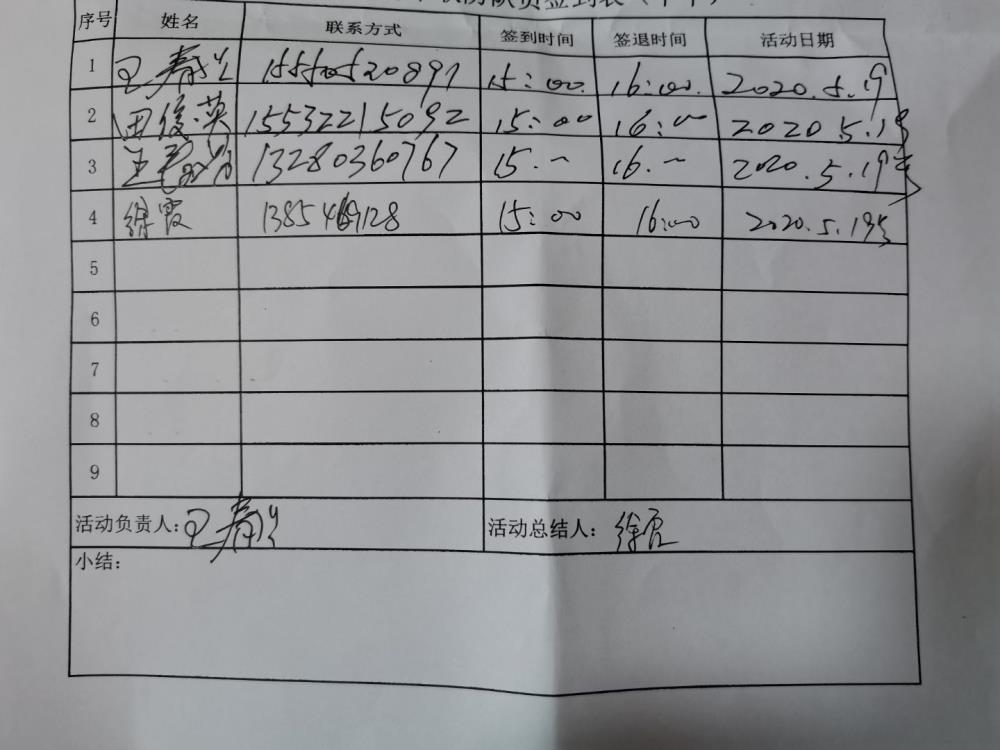 序号 姓名 联系方式 签到时间 签退时间 活动日期
1 王寿兰 15:00. 16:00. 2020.5.19
2 田俊英 15532215092 15:00 16: 2020.5.19
3 王 13280360767 15. 16. 2020.5.19
4 徐霞 15:00 16:00 2020.5.19
5
6
7
8
9
活动负责人: 王寿兰 活动总结人: 徐霞
小结: